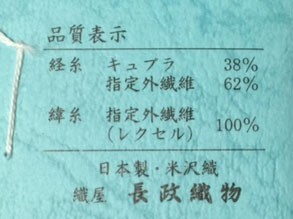 品質表示
経糸 キュプラ 38%
指定外繊維 62%
緯糸 指定外繊維 100%
(レクセル)
日本製・米沢織
織屋 長政織物